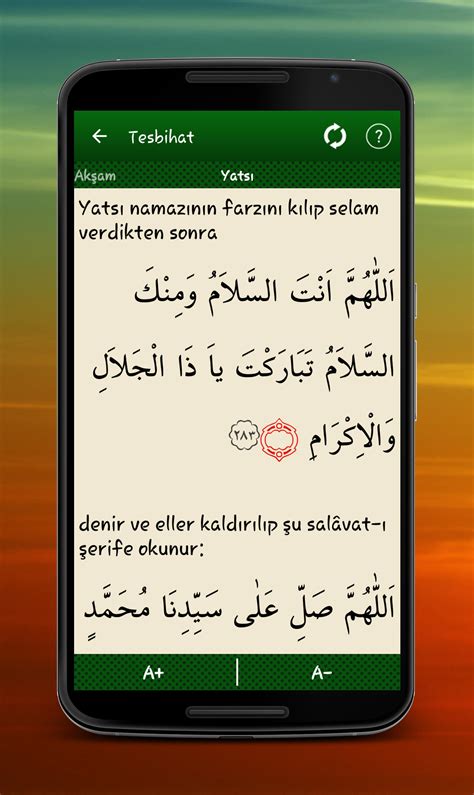 Tesbihat
?
Akşam Yatsı
Yatsı namazının farzını kılıp selam
verdikten sonra
اَللّٰهُمَّ اَنْتَ السَّلاَمُ وَمِنْكَ
السَّلاَمُ تَبَارَكْتَ ياَ ذَا الْجَلاَلِ
وَالْاِكْرَامِ ٢٨٣
denir ve eller kaldırılıp şu salâvat-ı
şerife okunur:
اَللّٰهُمَّ صَلِّ عَلٰى سَيِّدِنَا مُحَمَّدٍ
A+ A-